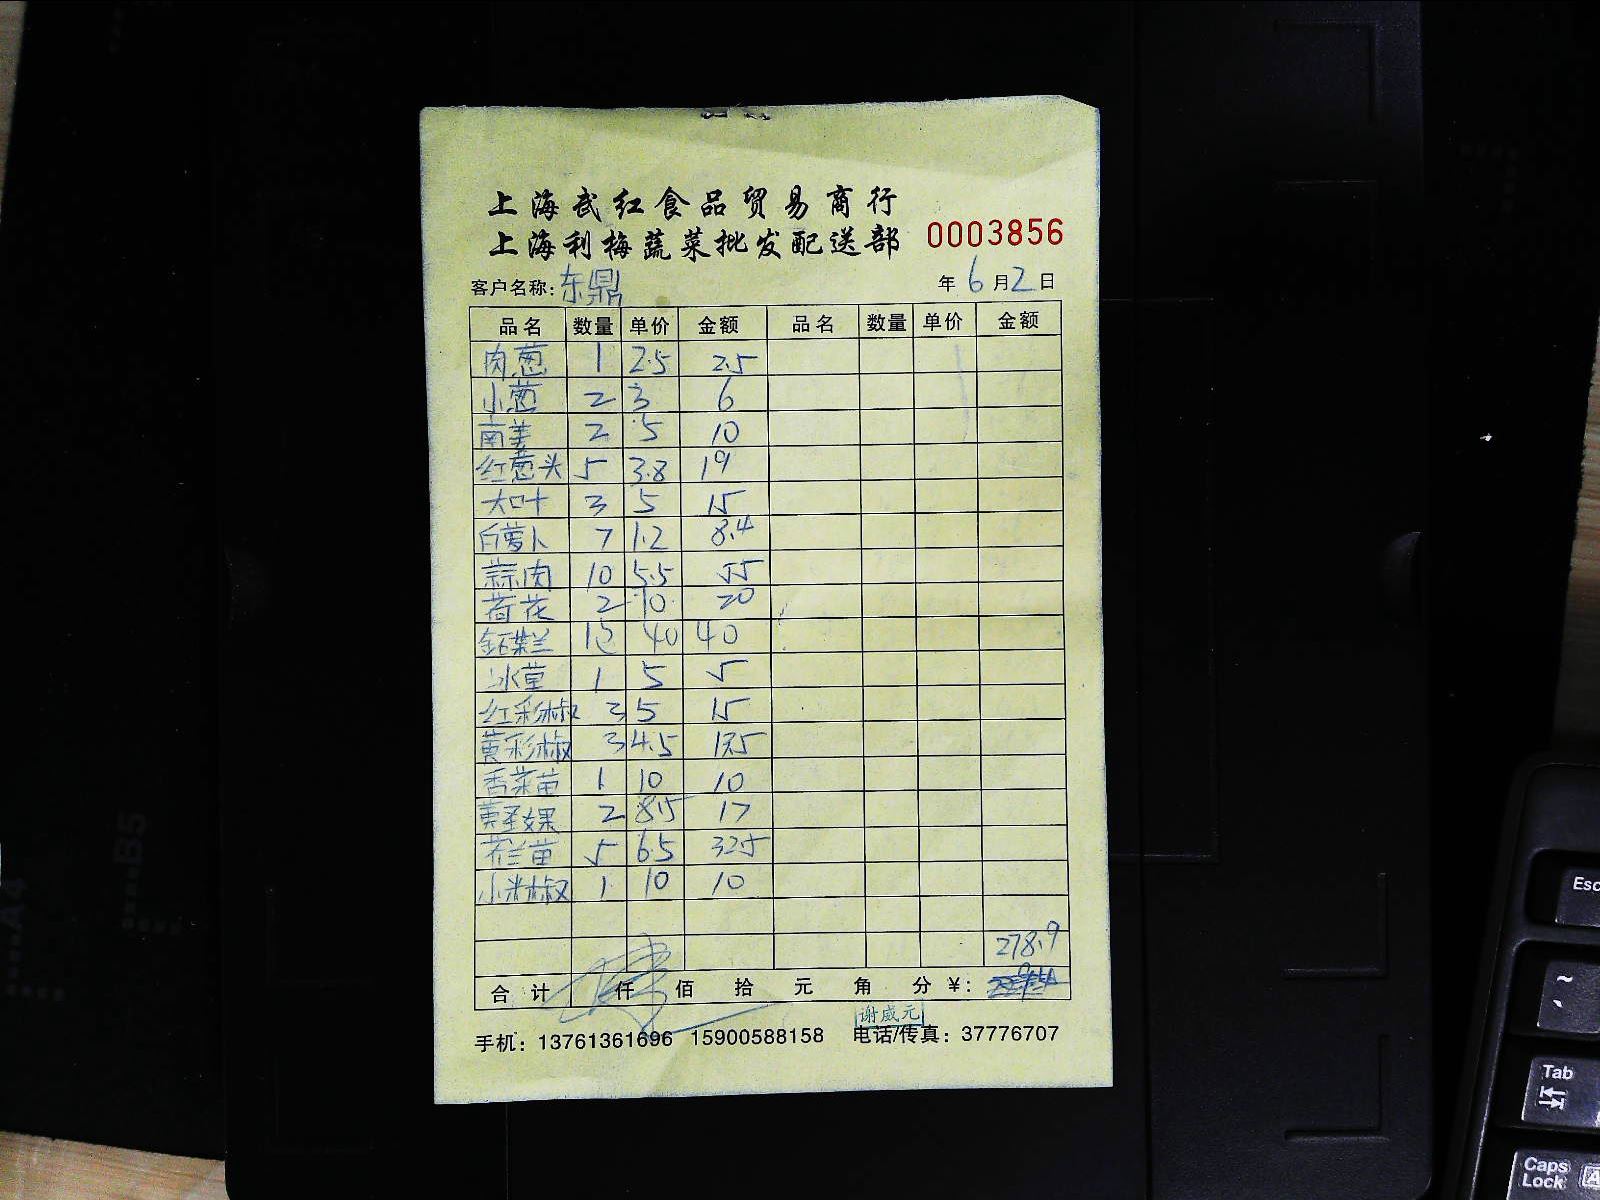 上海武红食品贸易商行
上海利梅蔬菜批发配送部
0003856
客户名称: 东鼎 年 6 月 2 日
品名 数量 单价 金额 品名 数量 单价 金额
肉葱 1 2.5 2.5
小葱 2 3 6
南姜 2 5 10
红葱头 5 3.8 19
大叶 3 5 15
白萝卜 7 1.2 8.4
蒜肉 10 5.5 55
荷花 2 10 20
40 40
冰草 1 5 5
红彩椒 3 5 15
黄彩椒 3 4.5 13.5
香菜苗 1 10 10
黄圣女果 2 8.5 17
花兰苗 5 6.5 32.5
小米椒 1 10 10
278.9
合计 仟 佰 拾 元 角 分 ¥:
谢威元
手机: 13761361696 15900588158 电话/传真: 37776707
B5
A4
Esc
~
Tab
Caps Lock